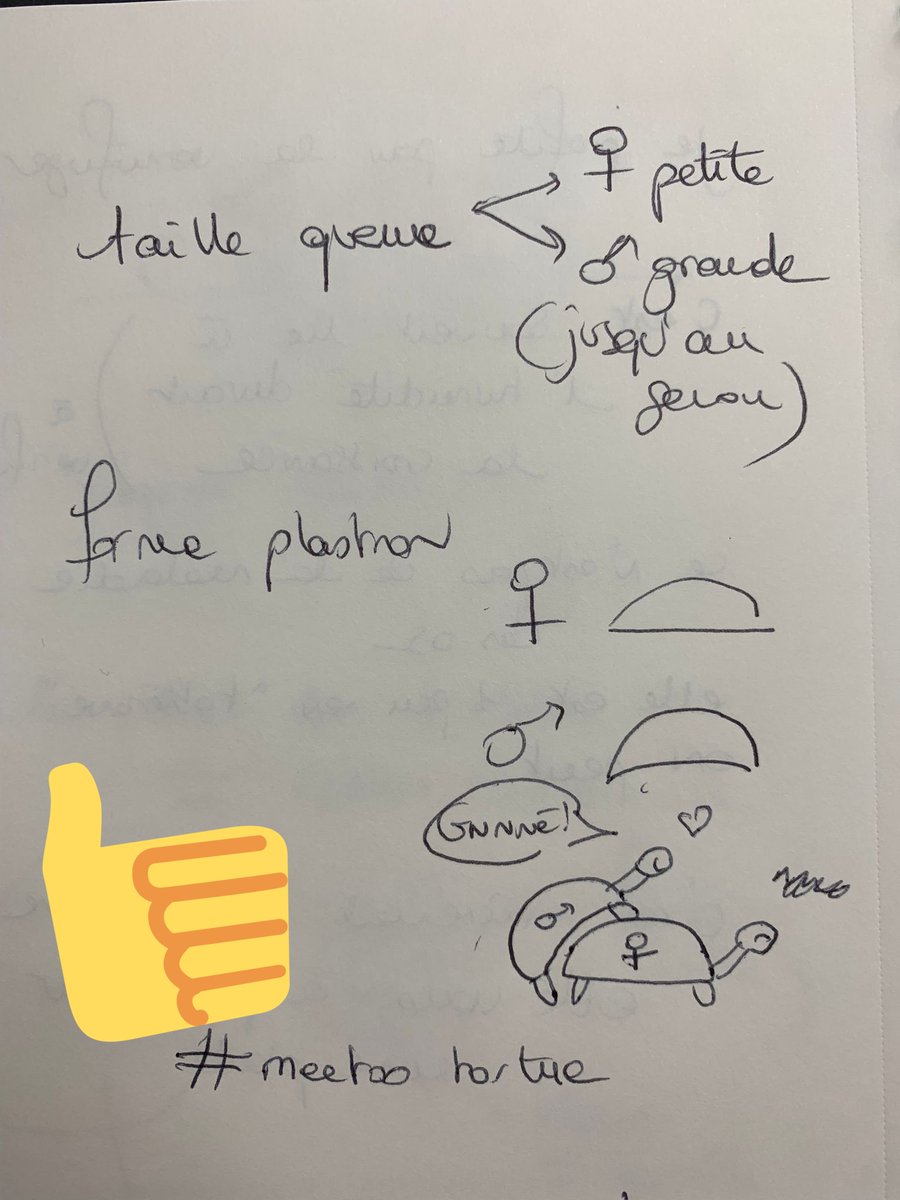 taille queue
♀ petite
♂ grande
(jusqu'au
genou)
forme plastron
♀
♂
GNNNÉ!
♂
♀
#meetoo tortue